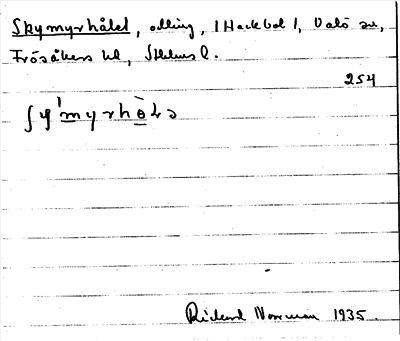 Skymyrhålet, odling, 1 Hackbol 1, Valö sn,
Frösåkers hd, Sthlms l.
254
Rickard Norrman 1935.